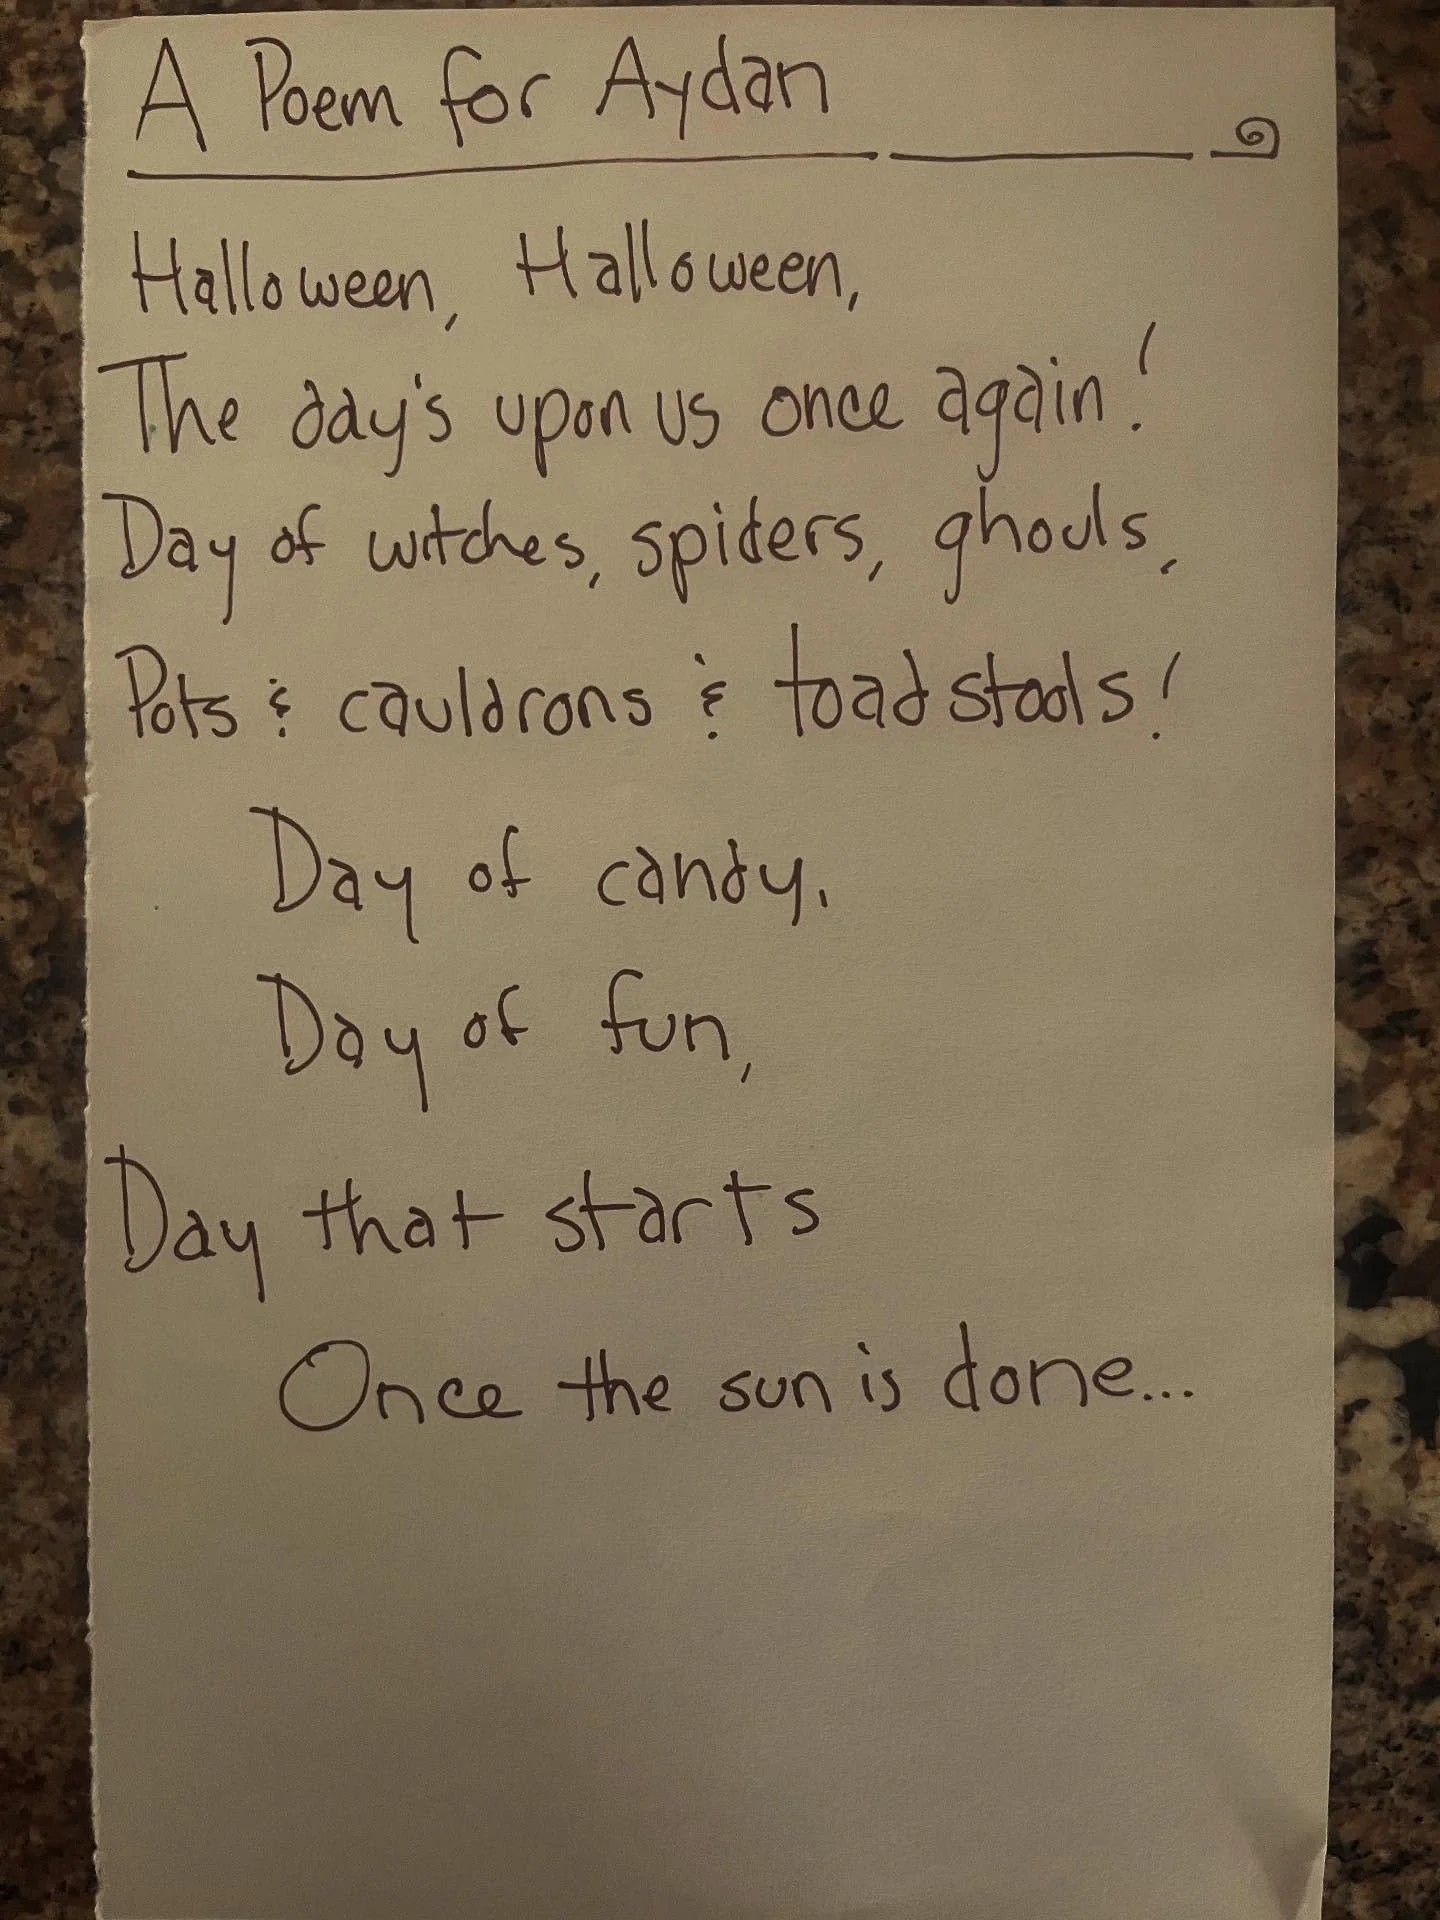 A Poem for Aydan
Halloween, Halloween,
The day's upon us once again!
Day of witches, spiders, ghouls,
Pots & cauldrons & toadstools!
Day of candy,
Day of fun,
Day that starts
Once the sun is done...